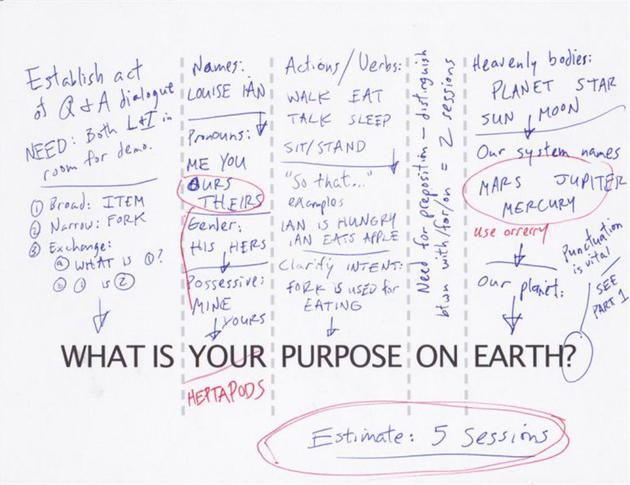 Establish act
of Q & A dialogue
NEED: Both L+I in
room for demo.
① Broad: ITEM
② Narrow: FORK
③ Exchange:
ⓐ WHAT IS ①?
ⓑ ① is ②
Names:
LOUISE IAN
Pronouns:
ME YOU
OURS
THEIRS
Gender:
HIS HERS
Possessive:
MINE
YOURS
Actions/Verbs:
WALK EAT
TALK SLEEP
SIT/STAND
"So that..."
examples
IAN IS HUNGRY
IAN EATS APPLE
Clarify INTENT:
FORK IS USED for
EATING
Need for preposition - distinguish
btwn with/for/on = 2 sessions
Heavenly bodies:
PLANET STAR
SUN MOON
Our system names
MARS JUPITER
MERCURY
use orrery
Our planet:
Punctuation
is vital
SEE
PART 1
WHAT IS YOUR PURPOSE ON EARTH?
HEPTAPODS
Estimate: 5 Sessions